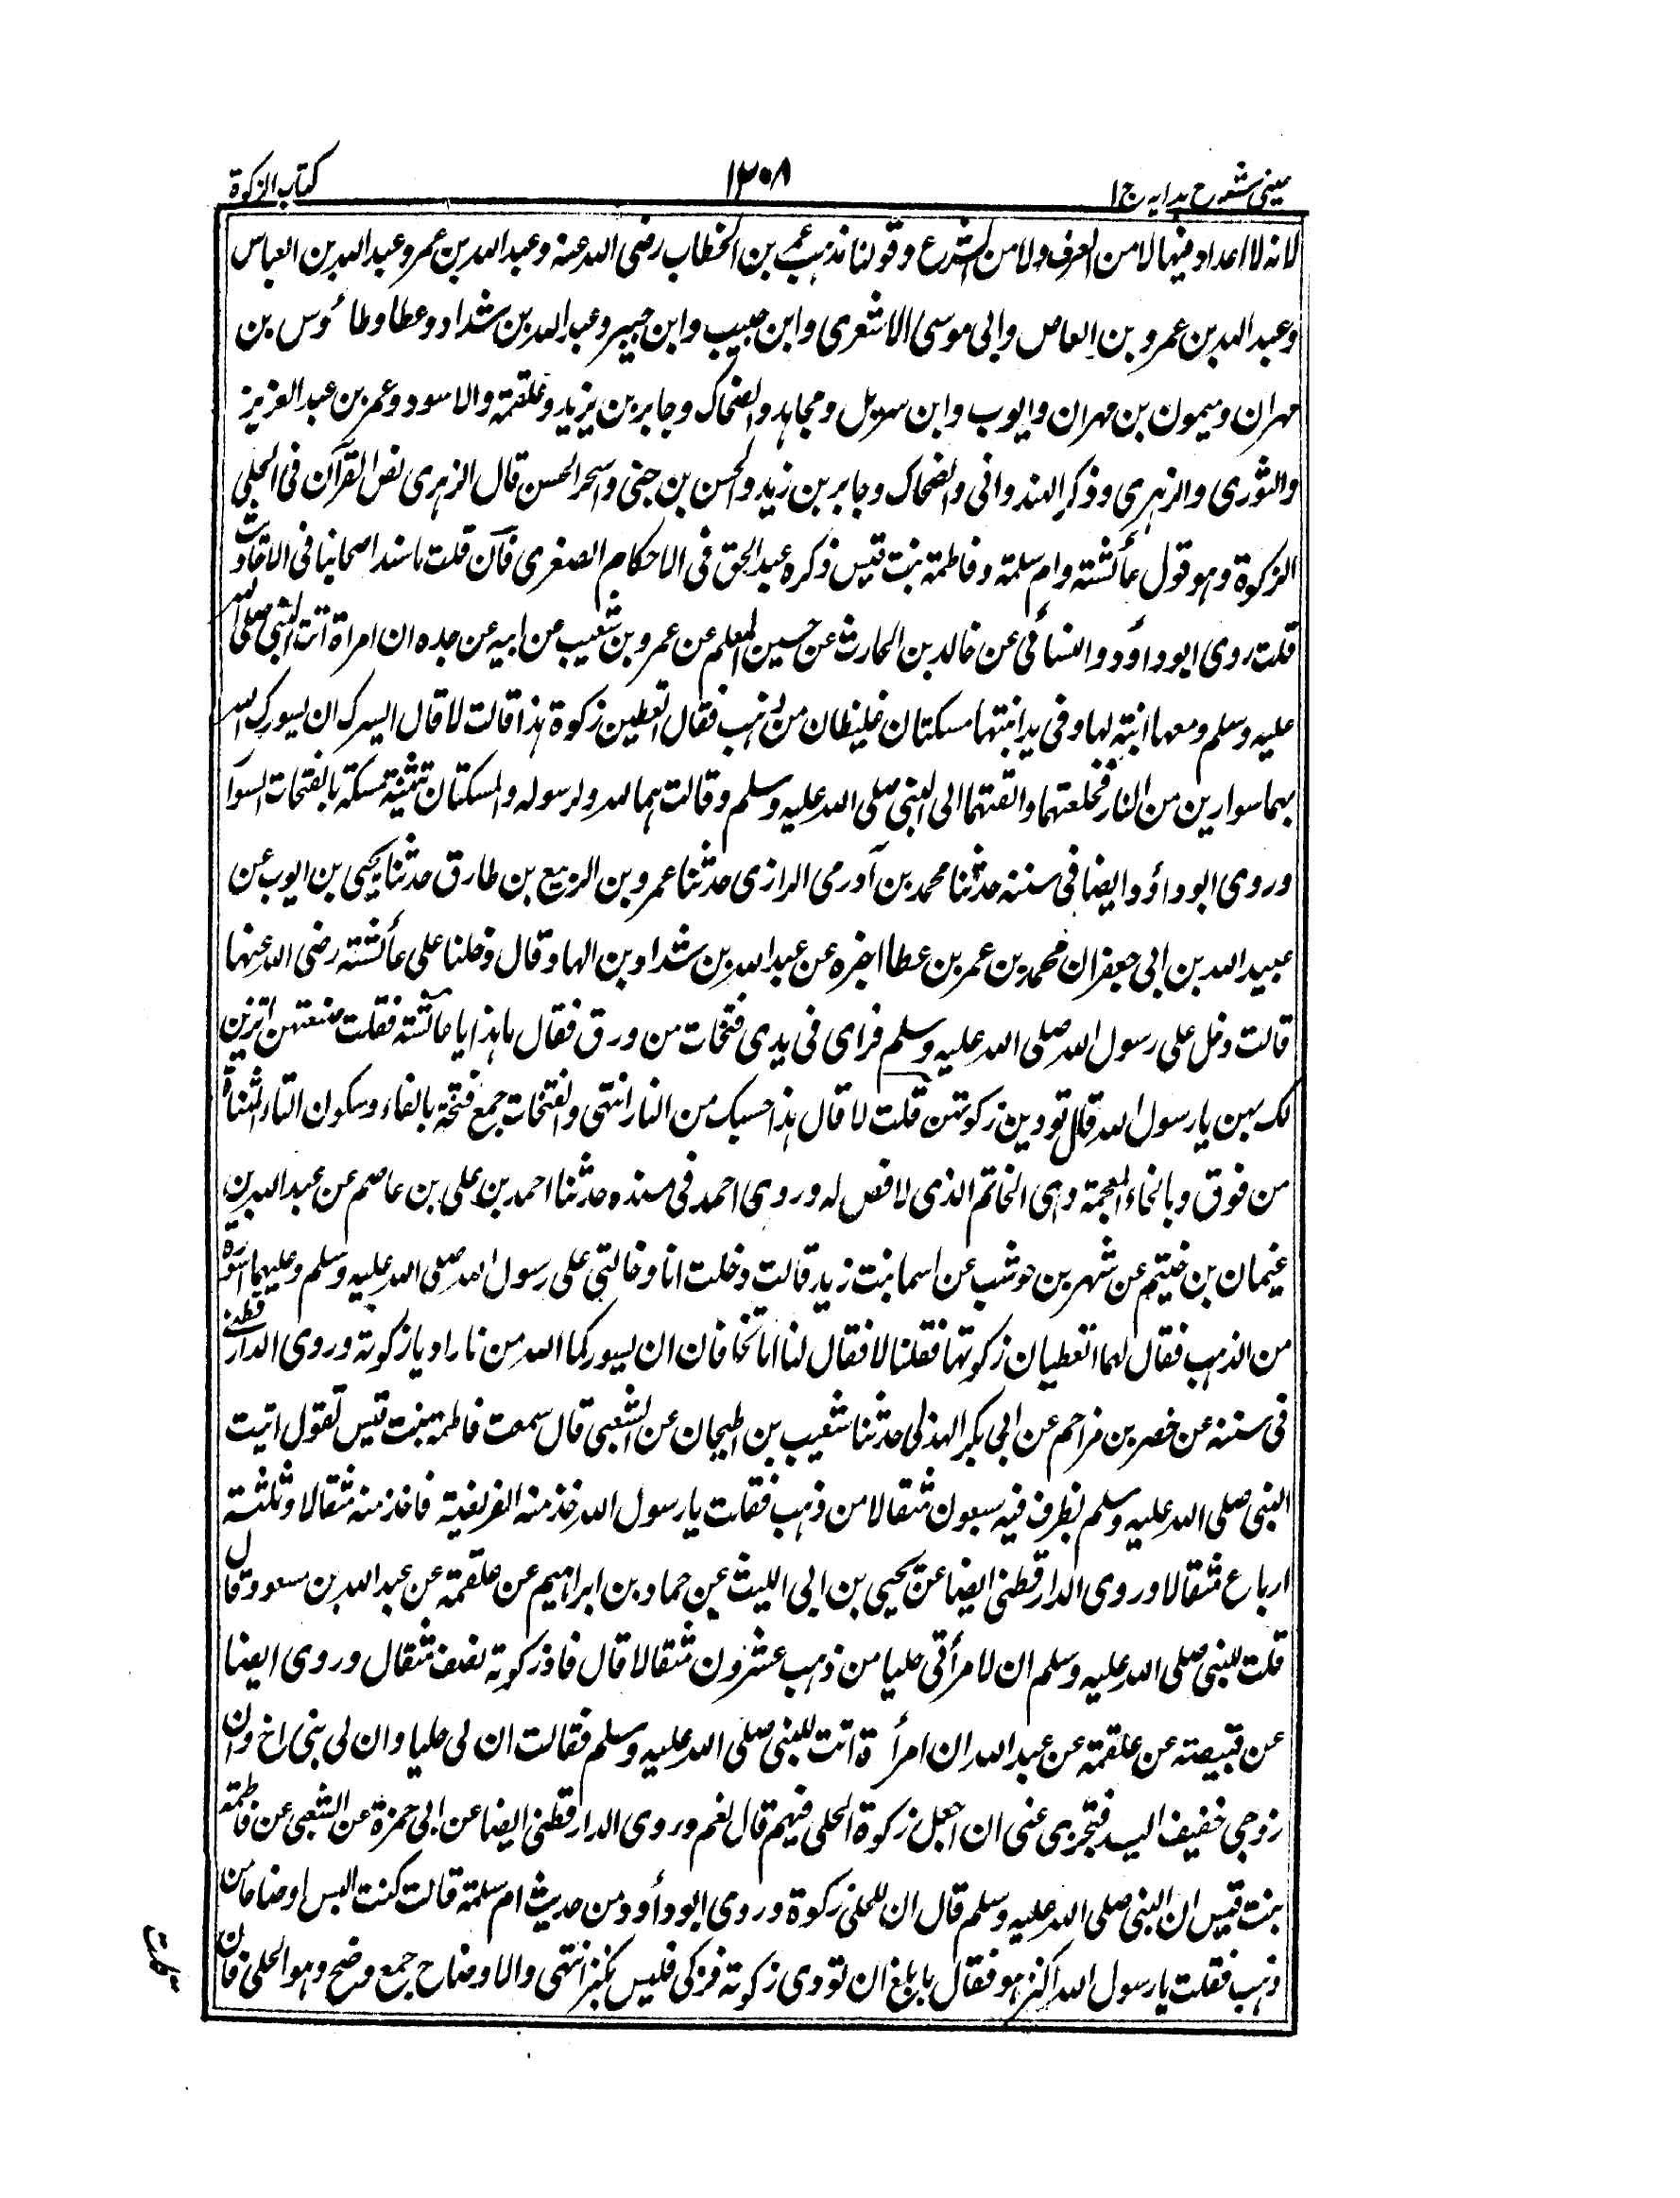 عینی شرح ہدایہ ج ۱
۱۲۰۸
کتاب الزکوة
لانه لا اعداد فیها لا من العرف ولا من الشرع وقولنا مذهب عمر بن الخطاب رضی الله عنه وعبد الله بن عمر وعبد الله بن العباس
وعبد الله بن عمرو بن العاص وابی موسی الاشعری وابن حبیب وابن جبیر وعبد الله بن شداد وعطا وطائوس بن
مهران ومیمون بن مهران وایوب وابن سهیل ومجاهد والضحاک وجابر بن یزید وعلقمة والاسود وعمر بن عبد العزیز
والثوری والزهری وذکر الهندوانی والضحاک وجابر بن زید والحسن بن حنی الحسن قال الزهری نص القرآن فی الحلی
الزکوة وهو قول عائشة وام سلمة وفاطمة بنت قیس ذکره عبد الحق فی الاحکام الصغری فان قلت ما سند اصحابنا فی الاحادیث
قلت روی ابو داؤد والنسائی عن خالد بن الحارث عن حسین المعلم عن عمرو بن شعیب عن ابیه عن جده ان امراة اتت النبی صلی الله
علیه وسلم ومعها ابنة لها وفی ید ابنتها مسکتان غلیظان من ذهب فقال اتعطین زکوة هذا قالت لا قال ایسرک ان یسورک الله
بهما سوارین من النار فخلعتهما والقتهما الی النبی صلی الله علیه وسلم وقالت هما لله ولرسوله والمسکتان تثنیة مسکة بالفتحات السوار
وروی ابو داؤد ایضا فی سننه حدثنا محمد بن آدرمی الرازی حدثنا عمرو بن الربیع بن طارق حدثنا یحیی بن ایوب عن
عبید الله بن ابی جعفر ان محمد بن عمر بن عطا اخبره عن عبد الله بن شداد بن الهاد قال دخلنا علی عائشة رضی الله عنها
قالت دخل علی رسول الله صلی الله علیه وسلم فرای فی یدی فتخات من ورق فقال ما هذا یا عائشة فقلت صنعتهن اتزین
لک بهن یا رسول الله قال تودین زکوتهن قلت لا قال هذا حسبک من النار انتهی والفتخات جمع فتخة بالفاء وسکون التاء المثناة
من فوق وبالخاء المعجمة وهی الخاتم الذی لا فص له وروی احمد فی مسنده حدثنا احمد بن علی بن عاصم عن عبد الله بن
غیمان بن خیثم عن شهر بن حوشب عن اسما بنت زید قالت دخلت انا وخالتی علی رسول الله صلی الله علیه وسلم وعلیهما اسورة
من الذهب فقال لهما اتعطیان زکوتها فقلنا لا فقال لنا اما تخافان ان یسورکما الله من نار ادیا زکوته وروی الدارقطنی
فی سننه عن خصر بن مزاحم عن ابی بکر الهذلی حدثنا شعیب بن الحبحاب عن الشعبی قال سمعت فاطمة بنت قیس تقول اتیت
النبی صلی الله علیه وسلم بظرف فیه سبعون مثقالا من ذهب فقلت یا رسول الله خذ منه الفریضة فاخذ منه مثقالا وثلثة
ارباع مثقالا وروی الدارقطنی ایضا عن یحیی بن ابی اللیث عن حماد بن ابراهیم عن علقمة عن عبد الله بن مسعود قال
قلت للنبی صلی الله علیه وسلم ان لامرأتی حلیا من ذهب عشرون مثقالا قال فاد زکوته نصف مثقال وروی ایضا
عن قبیصة عن علقمة عن عبد الله ان امرأة اتت للنبی صلی الله علیه وسلم فقالت ان لی حلیا وان لی بنی اخ وان
زوجی خفیف الید فتجزی عنی ان اجعل زکوة الحلی فیهم قال نعم وروی الدارقطنی ایضا عن ابی حمزة عن الشعبی عن فاطمة
بنت قیس ان النبی صلی الله علیه وسلم قال ان للحلی زکوة وروی ابو داؤد من حدیث ام سلمة قالت کنت البس اوضاحا من
ذهب فقلت یا رسول الله اکنز هو فقال ما بلغ ان تودی زکوته فزکی فلیس بکنز انتهی والاوضاح جمع وضح وهو الحلی فان
قلت